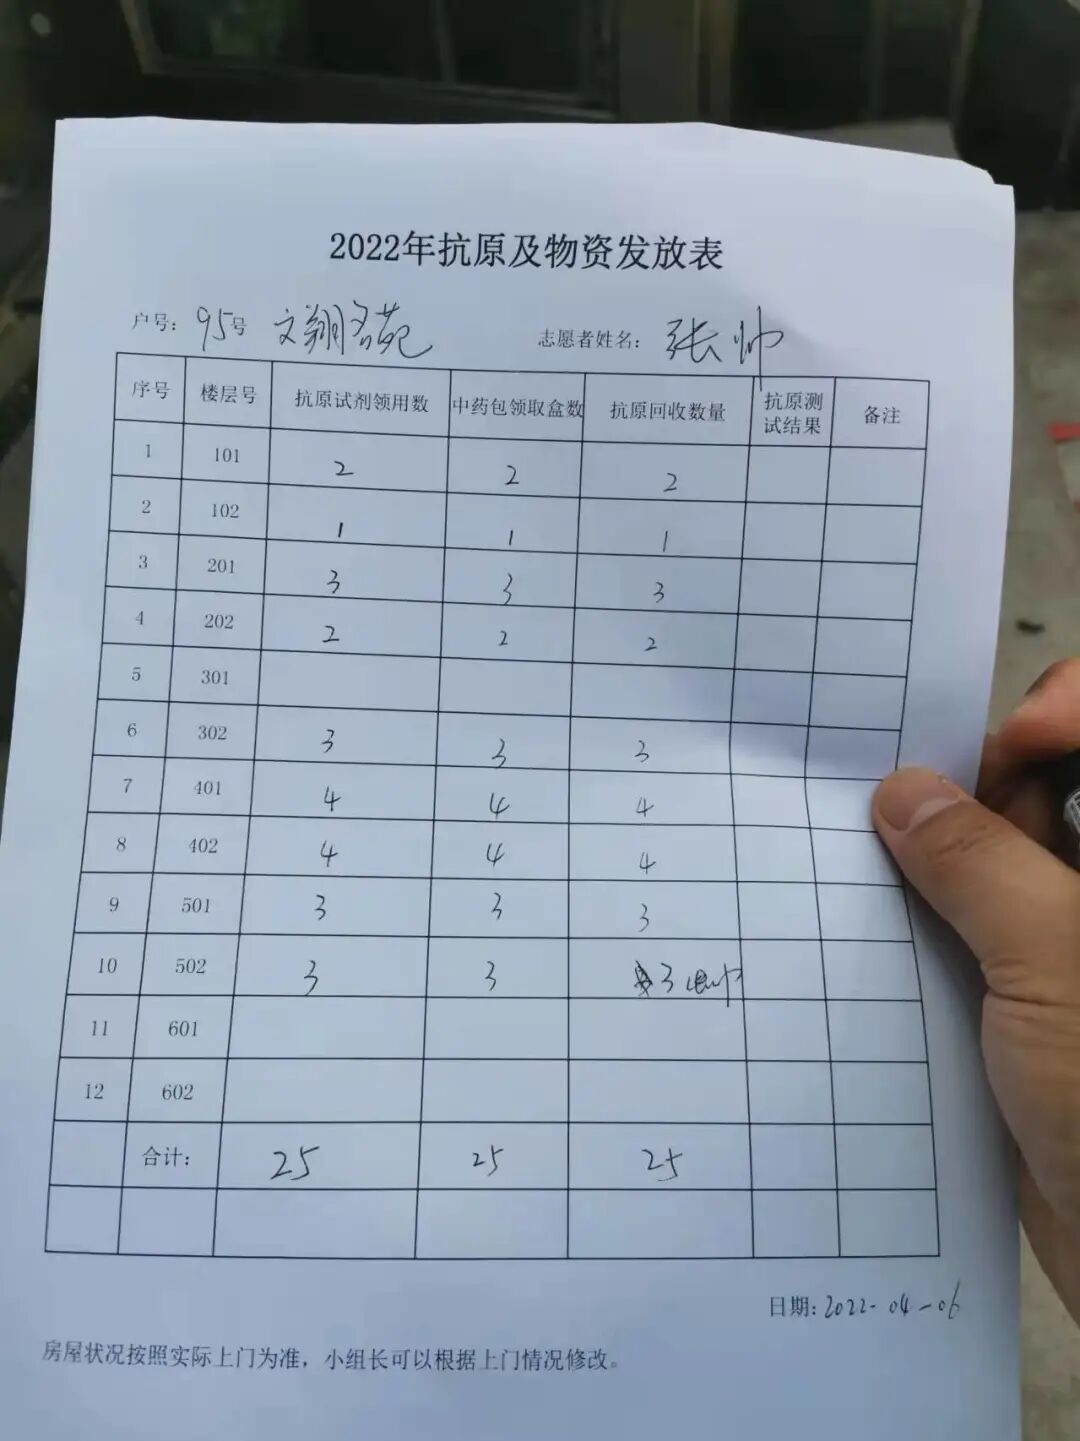 2022年抗原及物资发放表
户号: 95号 文翔名苑 志愿者姓名: 张帅
序号 楼层号 抗原试剂领用数 中药包领取盒数 抗原回收数量 抗原测试结果 备注
1 101 2 2 2
2 102 1 1 1
3 201 3 3 3
4 202 2 2 2
5 301
6 302 3 3 3
7 401 4 4 4
8 402 4 4 4
9 501 3 3 3
10 502 3 3 3
11 601
12 602
合计: 25 25 25
日期: 2022-04-06
房屋状况按照实际上门为准，小组长可以根据上门情况修改。